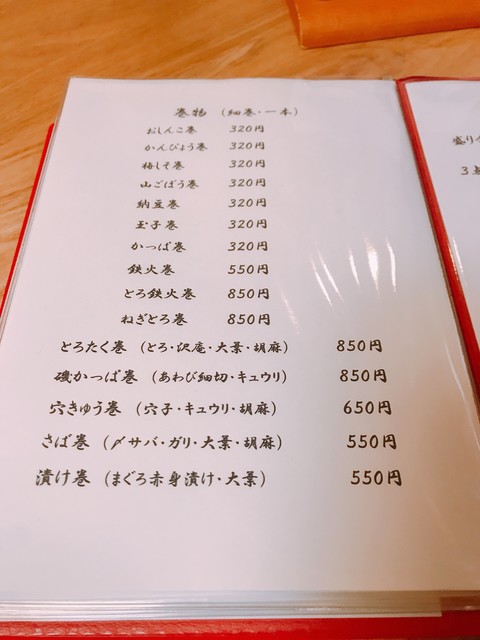 巻物 (細巻・一本)
おしんこ巻 320円
かんぴょう巻 320円
梅しそ巻 320円
山ごぼう巻 320円
納豆巻 320円
玉子巻 320円
かっぱ巻 320円
鉄火巻 550円
とろ鉄火巻 850円
ねぎとろ巻 850円
とろたく巻 (とろ・沢庵・大葉・胡麻) 850円
磯かっぱ巻 (あわび細切・キュウリ) 850円
穴きゅう巻 (穴子・キュウリ・胡麻) 650円
さば巻 (〆サバ・ガリ・大葉・胡麻) 550円
漬け巻 (まぐろ赤身漬け・大葉) 550円
盛り
3点